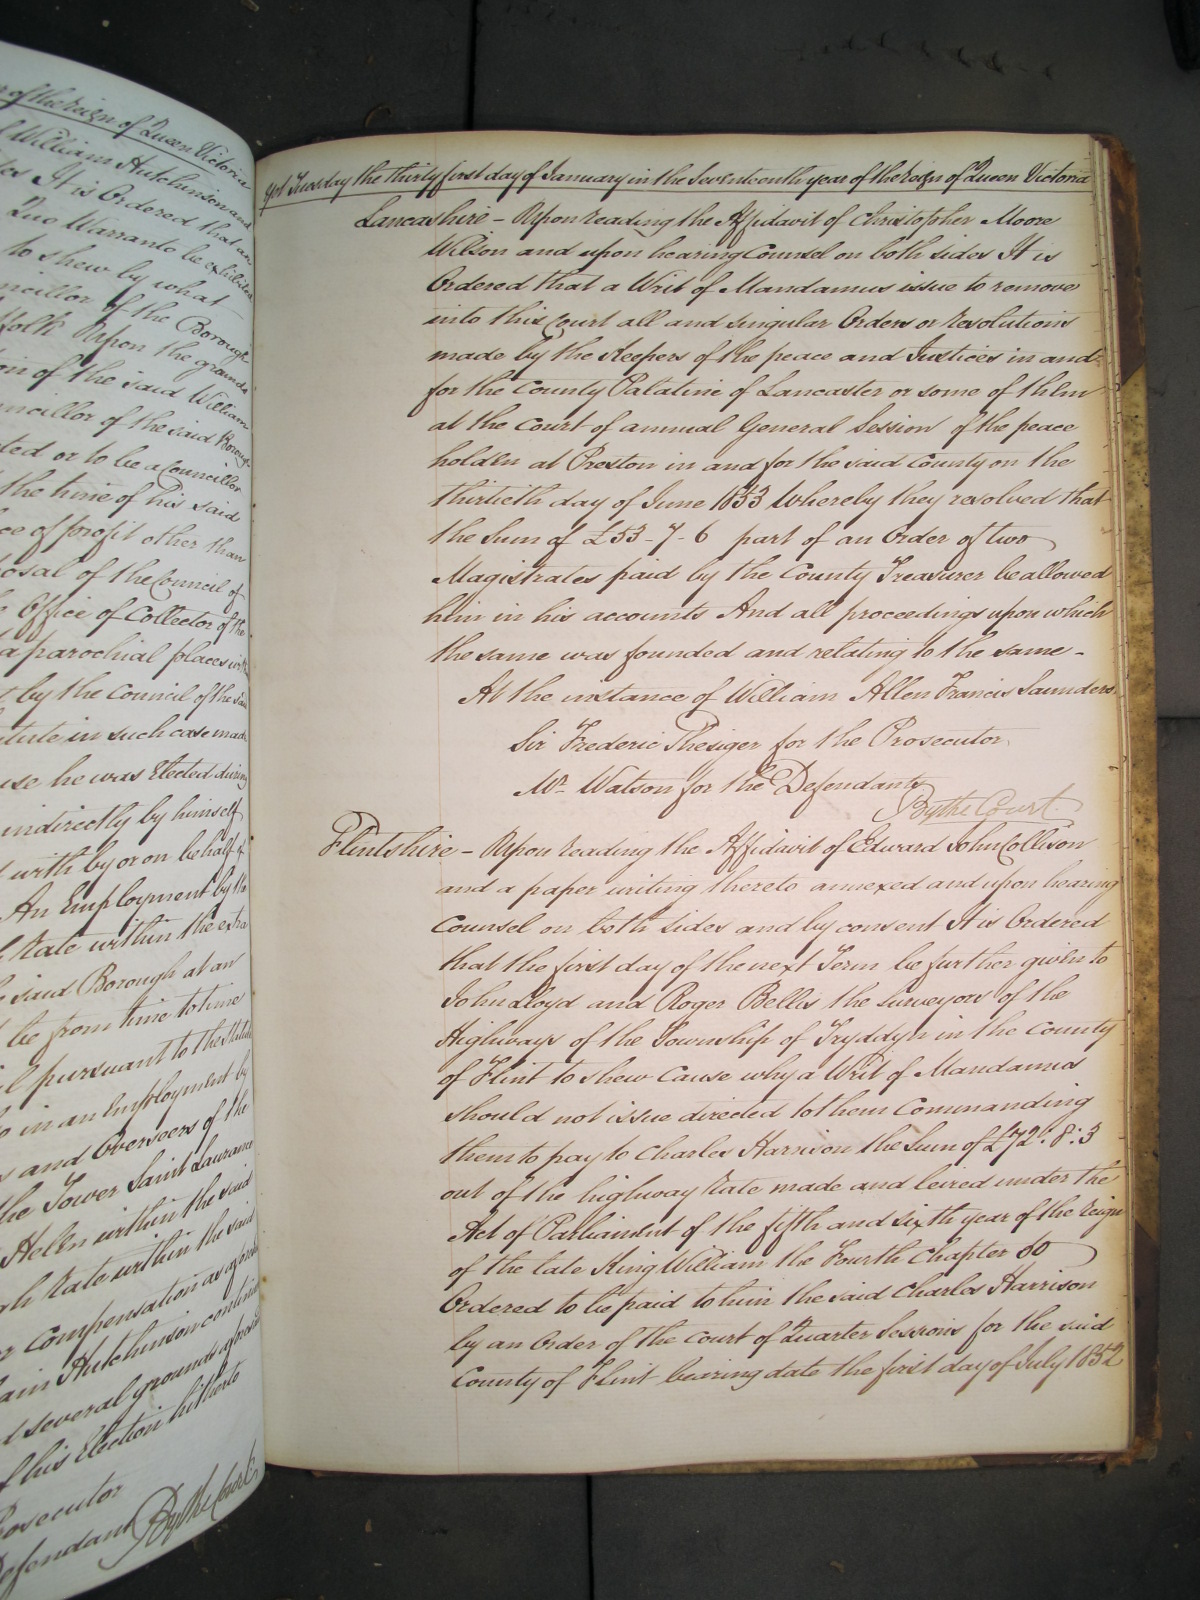 of the Reign of Queen Victoria
William Hutchinson and
It is Ordered that an
Quo Warranto be exhibited
to shew by what
of the Borough
Upon the grounds
of the said William
of the said Borough
or to be a Councillor
the time of his said
of profit other than
of the Council of
Office of Collector of the
parochial places
by the Council of the
in such case made
he was Elected during
indirectly by himself
with by or on behalf of
An Employment by the
Rate within the extra
said Borough at an
be from time to time
pursuant to the Statute
in an Employment by
and Overseers of the
the Tower Saint Laurance
Hellen within the said
Rate within the said
Compensation as aforesaid
Hutchinson
several grounds aforesaid
his Election hitherto
Prosecutor
Defendant By the Court
Yet Tuesday the thirty first day of January in the Seventeenth year of the Reign of Queen Victoria
Lancashire – Upon reading the Affidavit of Christopher Moore
Wilson and upon hearing Counsel on both sides It is
Ordered that a Writ of Mandamus issue to remove
into this Court all and singular Orders or resolutions
made by the Keepers of the peace and Justices in and
for the County Palatine of Lancaster or some of them
at the Court of annual General Session of the peace
holden at Preston in and for the said County on the
thirtieth day of June 1853 Whereby they resolved that
the Sum of £53-7-6 part of an Order of two
Magistrates paid by the County Treasurer be allowed
him in his accounts And all proceedings upon which
the same was founded and relating to the same –
At the instance of William Allen Francis Saunders
Sir Frederic Thesiger for the Prosecutor
Mr. Watson for the Defendants
By the Court.
Flintshire – Upon reading the Affidavit of Edward John Collison
and a paper writing thereto annexed and upon hearing
Counsel on both sides and by consent It is Ordered
that the first day of the next Term be further given to
John Lloyd and Roger Bellis the Surveyors of the
Highways of the Township of Tryddyn in the County
of Flint to shew Cause why a Writ of Mandamus
should not issue directed to them Commanding
them to pay to Charles Harrison the Sum of £72:8:3
out of the highway Rate made and levied under the
Act of Parliament of the fifth and sixth year of the reign
of the late King William the Fourth Chapter 50
Ordered to be paid to him the said Charles Harrison
by an Order of the Court of Quarter Sessions for the said
County of Flint bearing date the first day of July 1852